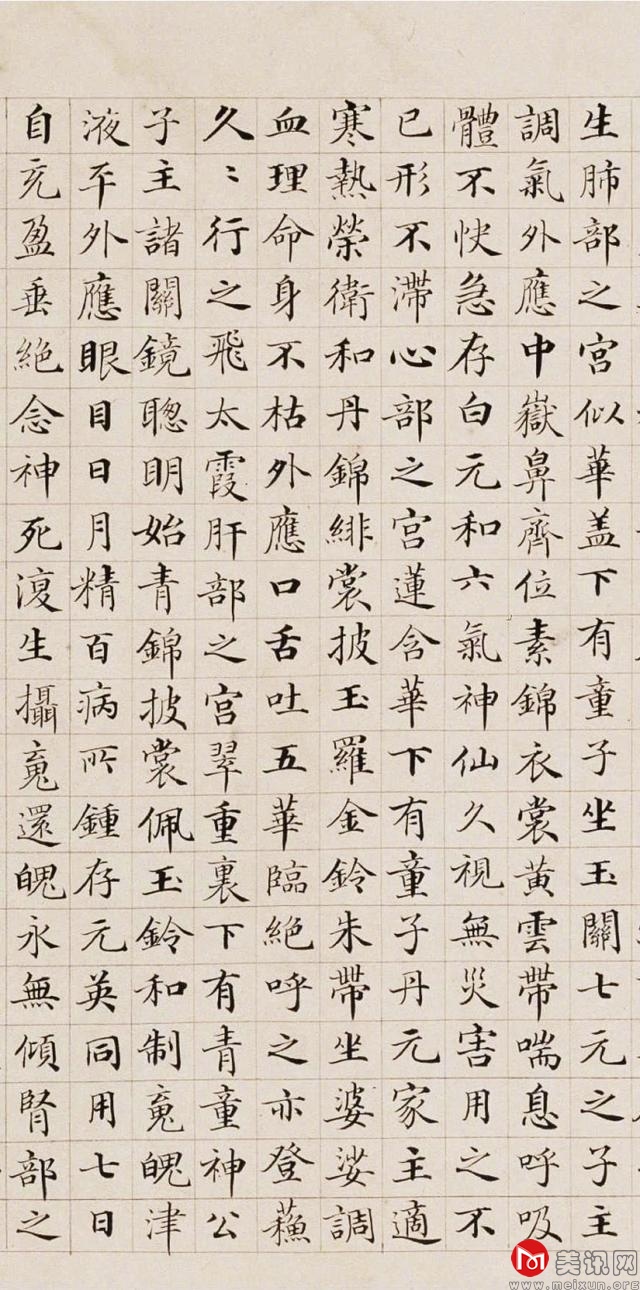 生肺部之宮似華盖下有童子坐玉關七元之子主
調氣外應中嶽鼻齊位素錦衣裳黃雲帶喘息呼吸
體不快急存白元和六氣神仙久視無災害用之不
已形不滯心部之宮蓮含華下有童子丹元家主適
寒熱榮衛和丹錦緋裳披玉羅金鈴朱帶坐婆娑調
血理命身不枯外應口舌吐五華臨絕呼之亦登蘓
久〻行之飛太霞肝部之宮翠重裏下有青童神公
子主諸關鏡聰明始青錦披裳佩玉鈴和制䰟魄津
液平外應眼目日月精百病所鍾存元英同用七日
自充盈垂絕念神死復生攝䰟還魄永無傾腎部之
美讯网
www.meixun.org